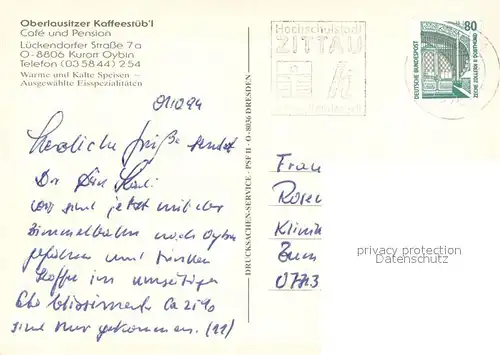 Oberlausitzer Kaffeestüb'l
Café und Pension
Lückendorfer Straße 7a
O-8806 Kurort Oybin
Telefon (035844) 254
Warme und Kalte Speisen –
Ausgewählte Eisspezialitäten
Hochschulstadt
ZITTAU
80
DEUTSCHE BUNDESPOST
ZECHE ZOLLERN II DORTMUND
DRUCKSACHEN-SERVICE - PSF 11 - O-8036 DRESDEN
Herzliche Grüße sendet
Dir Deine
wir sind jetzt mit der
Bimmelbahn nach Oybin
gefahren und trinken
Kaffee im umseitigen
ca 21%
sind nur gekommen. (11)
Frau
Rosen
Klinik
Zum
07743
privacy protection
Datenschutz